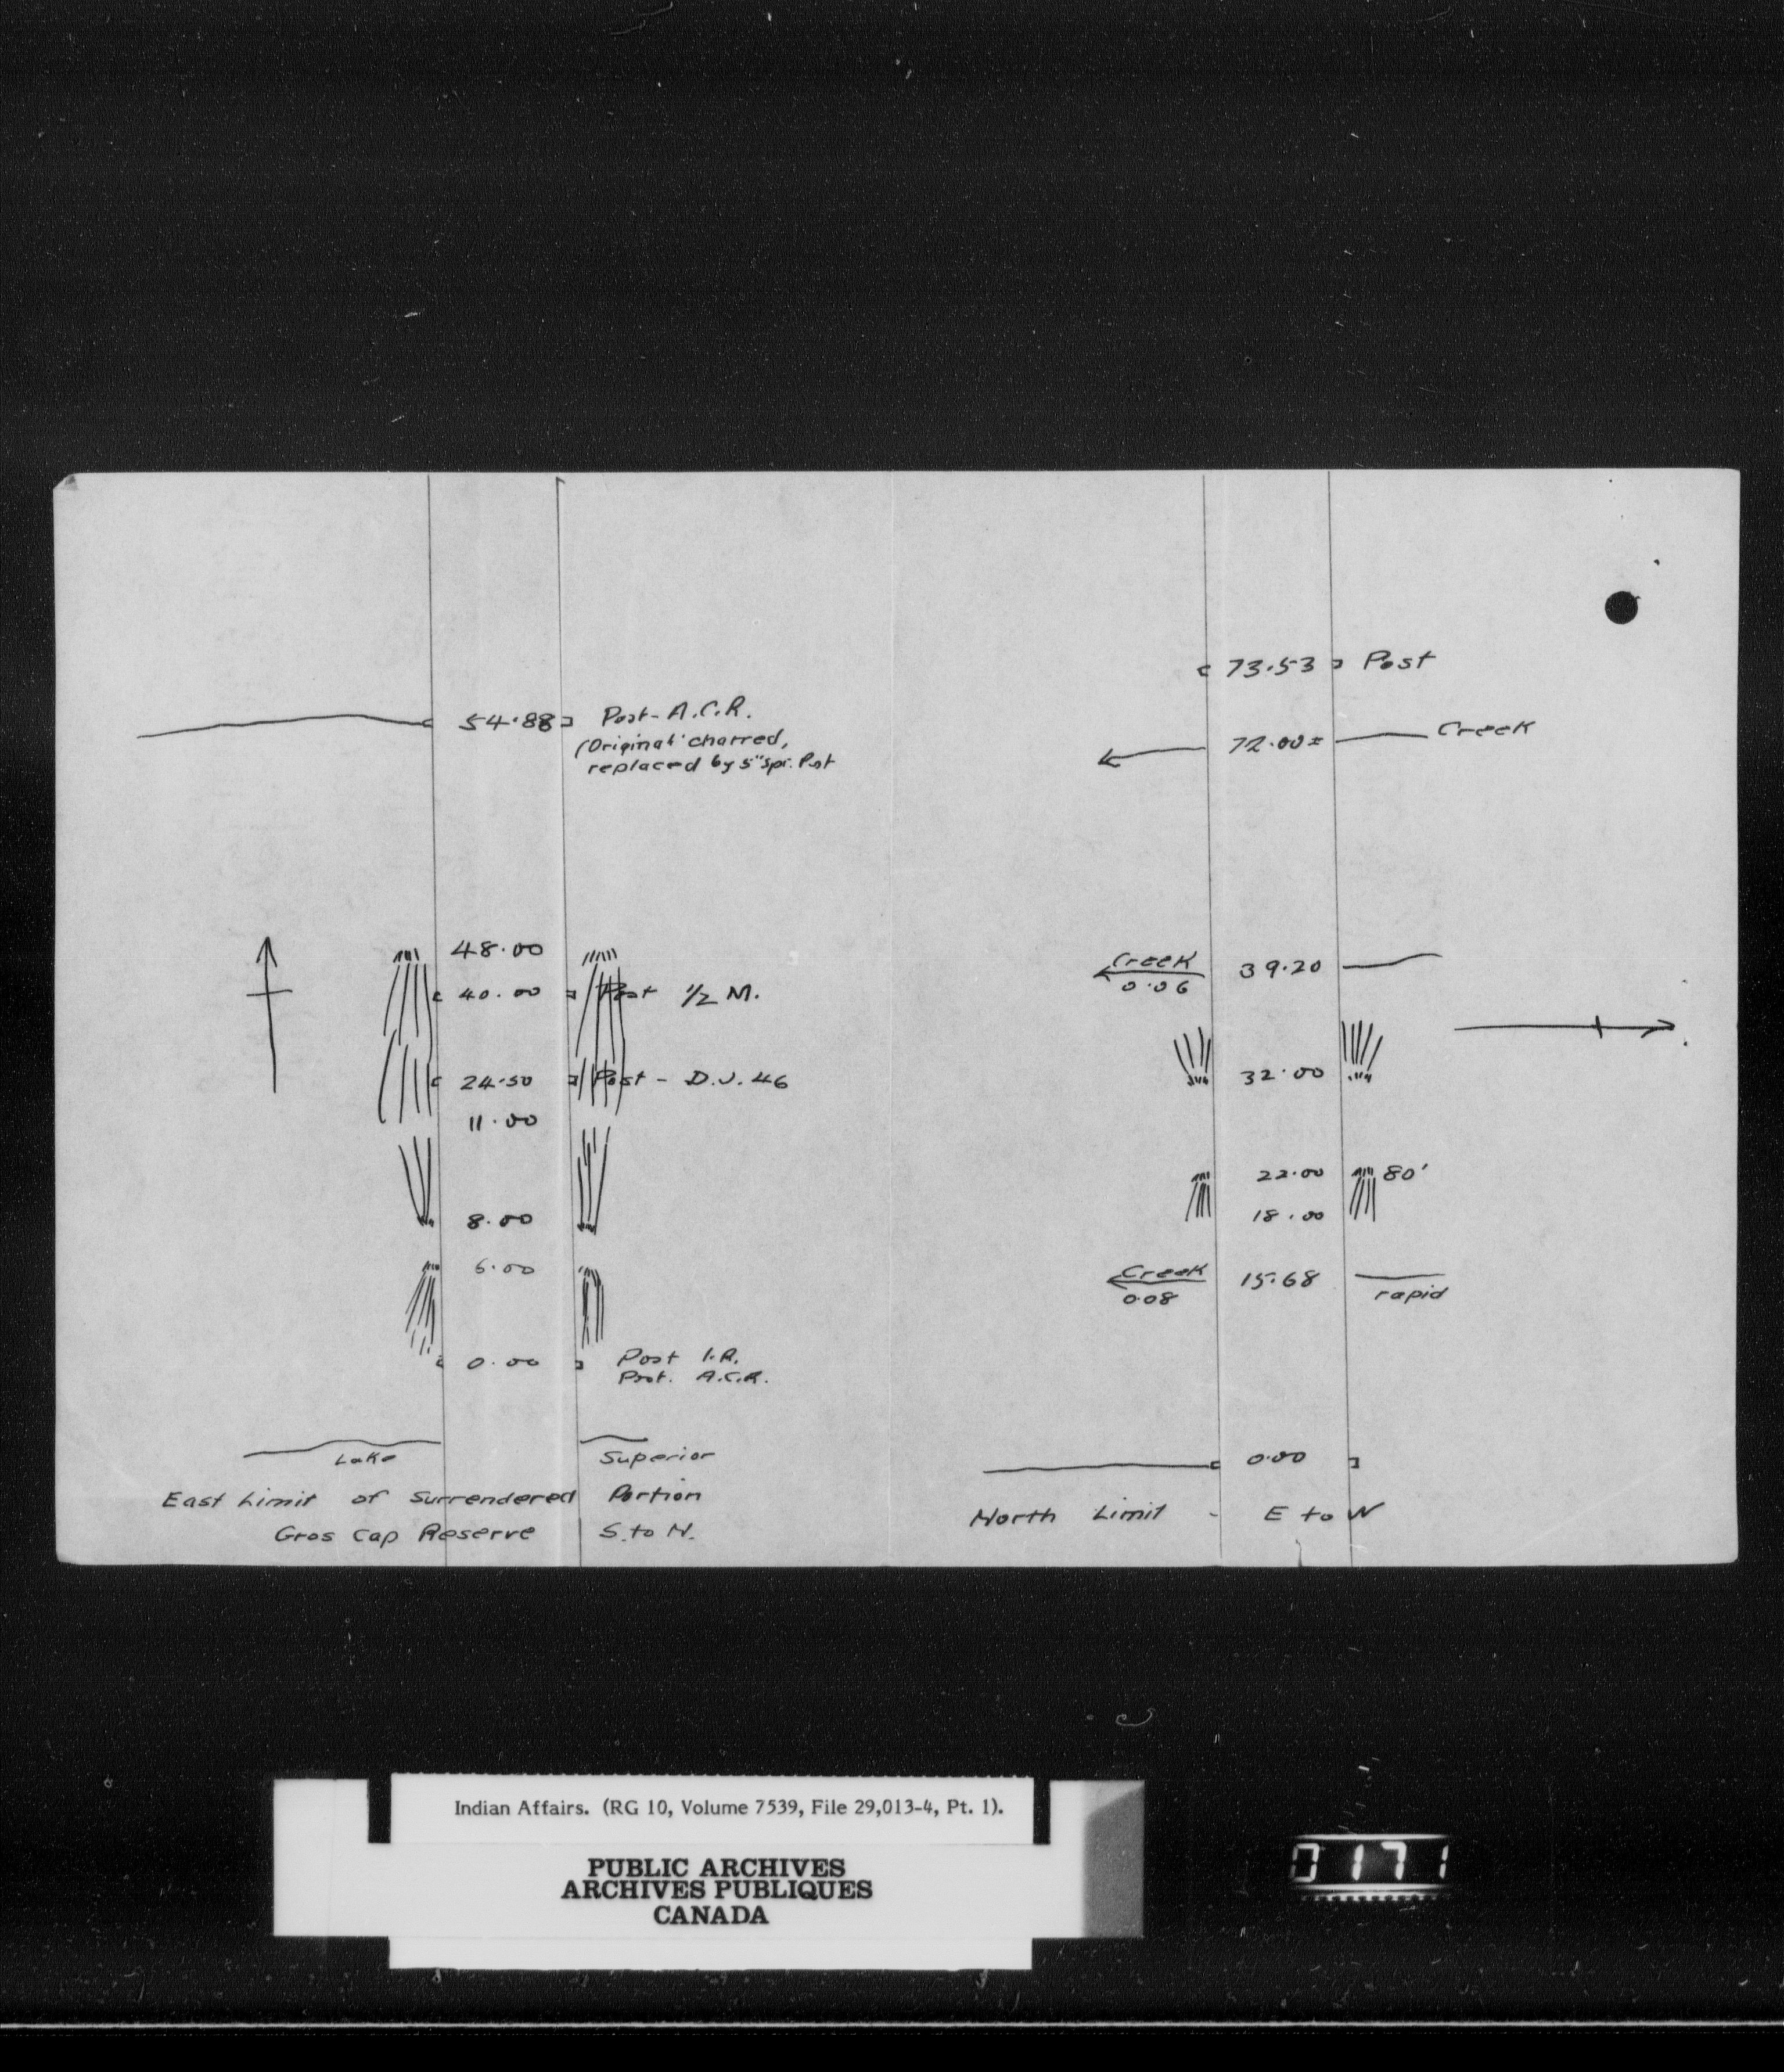 54.88 Post - A.C.R.
(Original charred,
replaced by 5" spr. Post
48.00
40.00 Post 1/2 M.
24.50 Post - D.J. 46
11.00
8.00
6.00
0.00 Post I.R.
Post. A.C.R.
Lake Superior
East Limit of Surrendered Portion
Gros Cap Reserve S. to N.
73.53 Post
72.00± Creek
Creek 39.20
0.06
32.00
22.00 80'
18.00
Creek 15.68
0.08 rapid
0.00
North Limit - E to W
Indian Affairs. (RG 10, Volume 7539, File 29,013-4, Pt. 1).
PUBLIC ARCHIVES
ARCHIVES PUBLIQUES
CANADA
0171